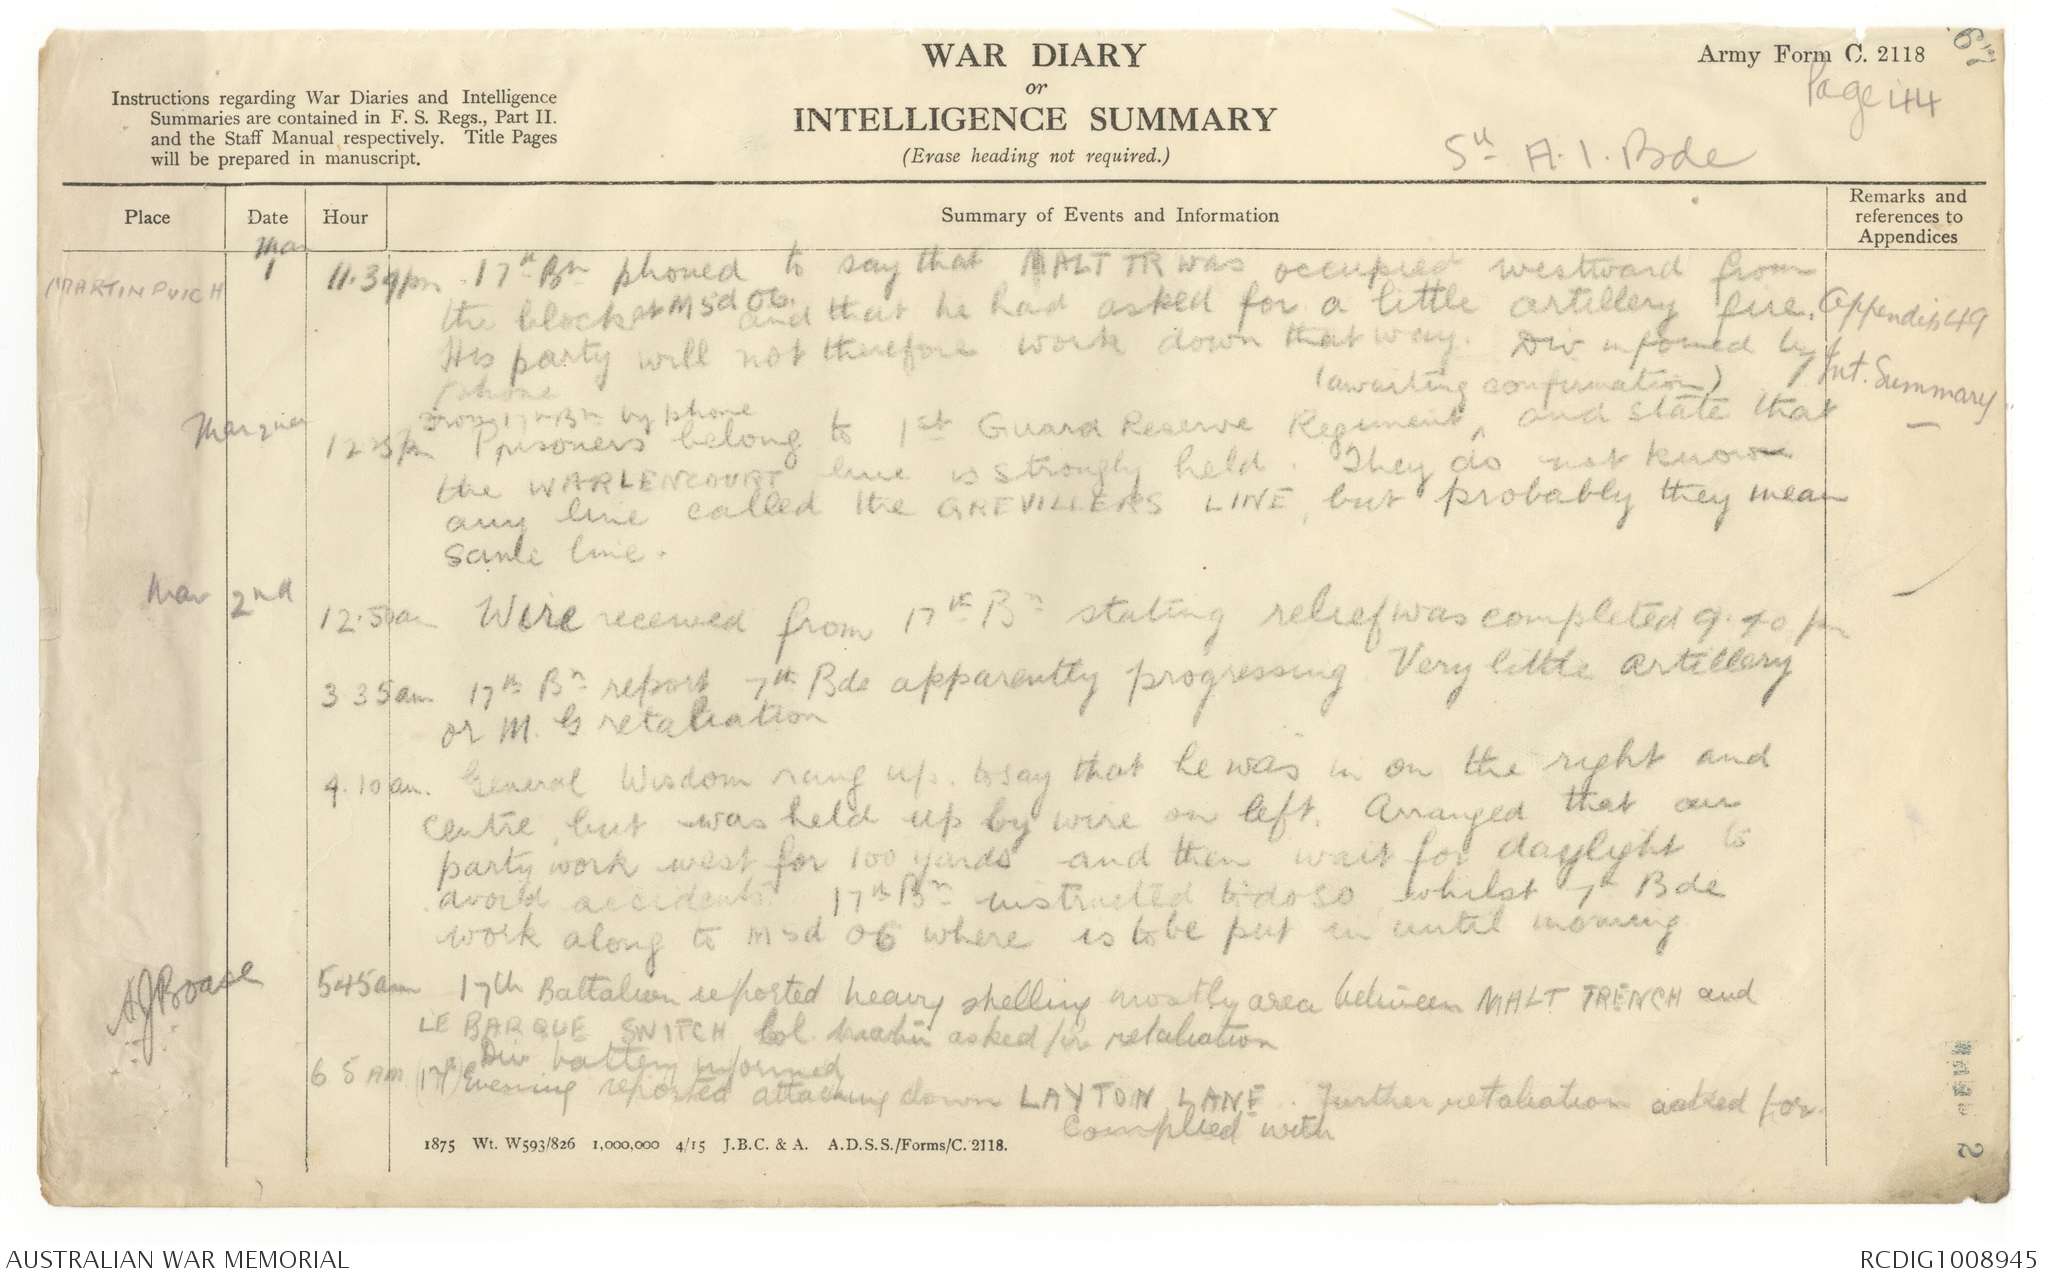 WAR DIARY
or
INTELLIGENCE SUMMARY
(Erase heading not required.)
Army Form C. 2118
Page 44
Instructions regarding War Diaries and Intelligence
Summaries are contained in F. S. Regs., Part II.
and the Staff Manual respectively. Title Pages
will be prepared in manuscript.
5th A. I. Bde
Place
Date
Hour
Summary of Events and Information
Remarks and
references to
Appendices
MARTINPUICH
Mar
1
11.39pm 17th Bn phoned to say that MALT TR was occupied westward from
the block at M5d 06. and that he had asked for a little artillery fire.
His party will not therefore work down that way. Div informed by
phone
Appendix 49
Int. Summary
(awaiting confirmation)
From 17th Bn by phone
Prisoners belong to 1st Guard Reserve Regiment, and state that
the WARLENCOURT line is strongly held. They do not know
any line called the GREVILLERS LINE, but probably they mean
same line.
Mar 2nd
12.50am Wire received from 17th Bn stating relief was completed 9.40 pm
3 35am 17th Bn report 7th Bde apparently progressing Very little artillery
or M. G retaliation
4.10am. General Wisdom rang up. to say that he was in on the right and
centre, but was held up by wire on left. Arranged that our
party work west for 100 yards and then wait for daylight to
avoid accidents. 17th Bn instructed to do so whilst 7th Bde
work along to M5d 06 where is to be put in until morning
AJ Boase
545am 17th Battalion reported heavy shelling mostly area between MALT TRENCH and
LE BARQUE SWITCH Col. Martin asked for retaliation
Div battery informed
6 5 AM (17th) Evening reported attacking down LAYTON LANE. Further retaliation asked for.
Complied with
1875 Wt. W593/826 1,000,000 4/15 J.B.C. & A. A.D.S.S./Forms/C. 2118.
2
AUSTRALIAN WAR MEMORIAL
RCDIG1008945